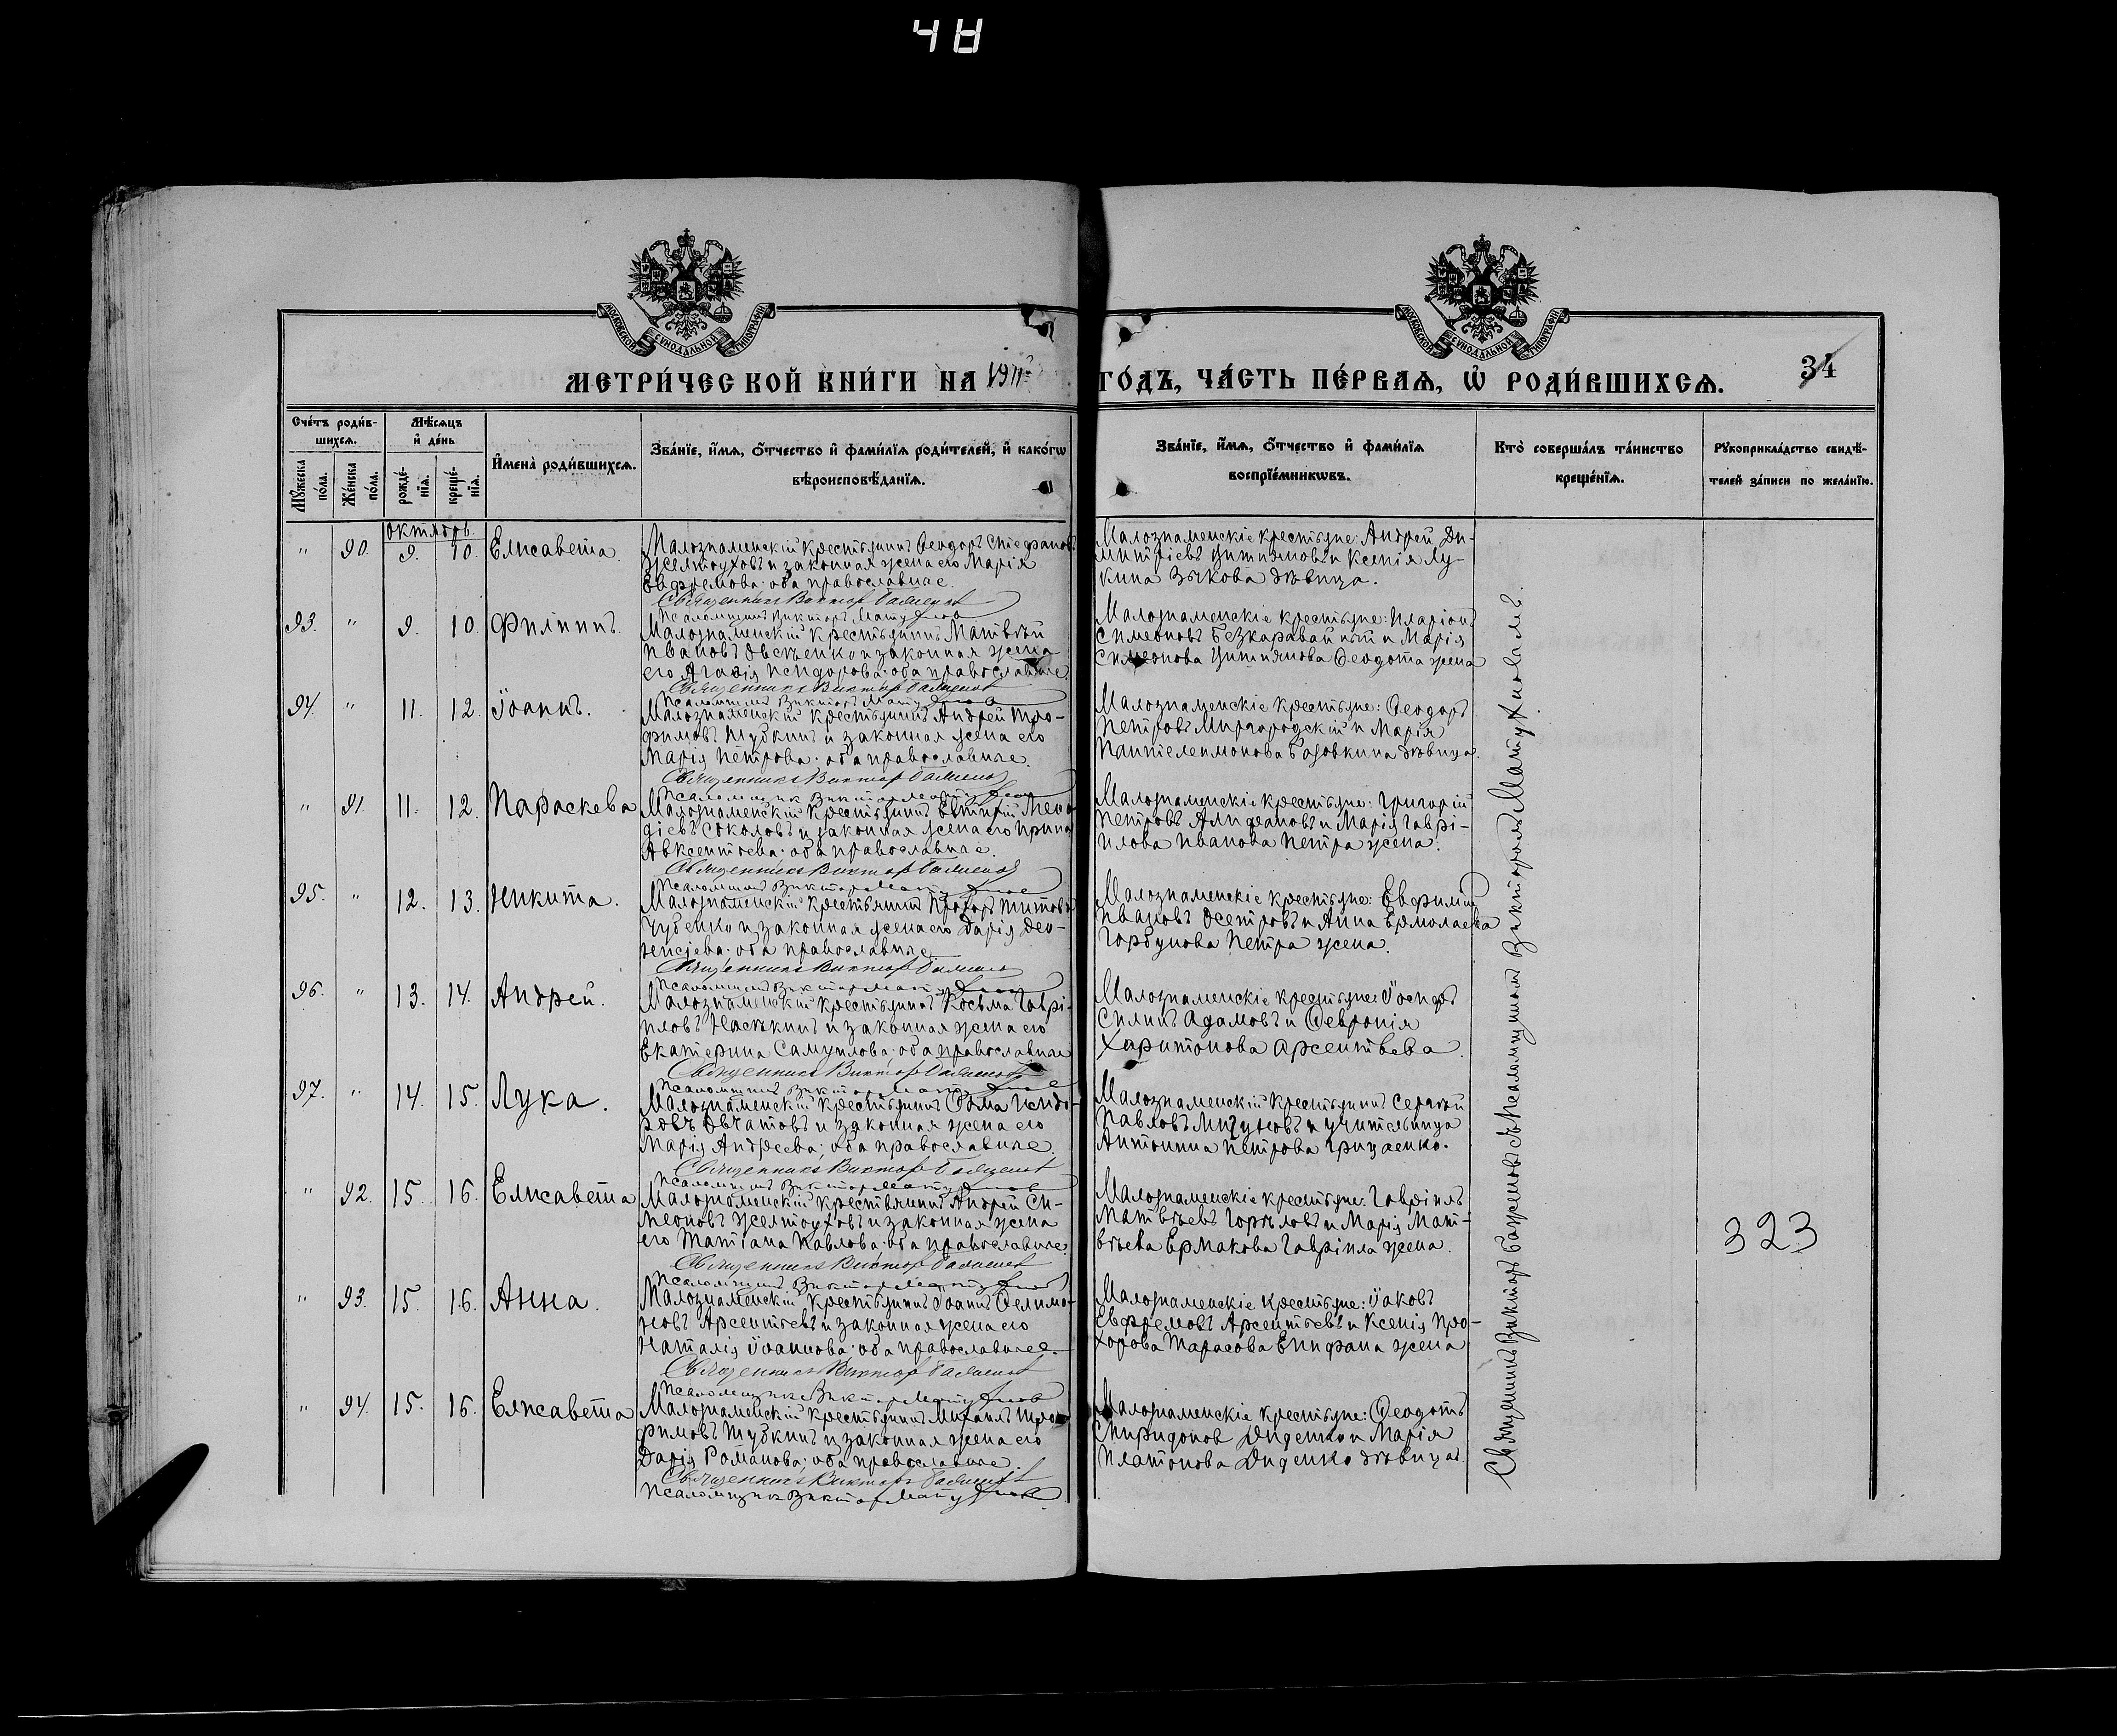 48
МОСКОВСКОЙ СѴНОДАЛЬНОЙ ТИПОГРАФІИ
МОСКОВСКОЙ СѴНОДАЛЬНОЙ ТИПОГРАФІИ
34
МЕТРИ́ЧЕСКОЙ КНИ́ГИ НА 1911 ГО́ДЪ, ЧА́СТЬ ПЕ́РВАѦ, Ѡ҆ РОДИ́ВШИХСѦ.
Сче́тъ роди́в-
шихсѧ.
Мѣ́сѧцъ
и҆ де́нь
Мꙋ́жеска по́ла.
Же́нска по́ла.
рожде́-
нїѧ.
креще́-
нїѧ.
И҆мена̀ роди́вшихсѧ.
Зва́нїе, и҆́мѧ, ѻ҆́тчество и҆ фами́лїѧ роди́телей, и҆ како́гѡ
вѣроисповѣ́данїѧ.
Зва́нїе, и҆́мѧ, ѻ҆́тчество и҆ фами́лїѧ
воспрїе́мникѡвъ.
Кто̀ соверша́лъ та́инство
креще́нїѧ.
Рꙋкоприкла́дство свидѣ́-
телей за́писи по жела́нїю.
октябрь
" 90. 9. 10. Елисавета.
Малознаменскій крестьянинъ Ѳеодоръ Стефановъ
Желтоуховъ и законная жена его Марія
Евфремова; оба православные.
Священникъ Викторъ Баженовъ
Псаломщикъ Викторъ Матухновъ
Малознаменскіе крестьяне: Андрей Ди-
митріевъ и Ксенія Лу-
кина Зыкова дѣвица.
93. " 9. 10. Филиппъ.
Малознаменскій крестьянинъ Матвѣй
Ивановъ Овсѣенко и законная жена
его Агаѳія Исидорова; оба православные.
Священникъ Викторъ Баженовъ
Псаломщикъ Викторъ Матухновъ
Малознаменскіе крестьяне: Иларіонъ
Симеоновъ Безкаравайный и Марія
Симеонова Ѳеодота жена
94. " 11. 12. Іоаннъ.
Малознаменскій крестьянинъ Андрей Тро-
фимовъ Шубкинъ и законная жена его
Марія Петрова; оба православные.
Священникъ Викторъ Баженовъ
Псаломщикъ Викторъ Матухновъ
Малознаменскіе крестьяне: Ѳеодоръ
Петровъ Миргородскій и Марія
Пантелеимонова дѣвица.
" 91. 11. 12. Параскева
Малознаменскій крестьянинъ Евтихій
Соколовъ и законная жена его Ирина
Авксентьева; оба православные.
Священникъ Викторъ Баженовъ
Псаломщикъ Викторъ Матухновъ
Малознаменскіе крестьяне: Григорій
Петровъ Алифановъ и Марія Гаврі-
илова Иванова Петра жена.
95. " 12. 13. Никита.
Малознаменскій крестьянинъ Прохоръ Титовъ
Чубенко и законная жена его Дарія Діо-
нисіева; оба православные.
Священникъ Викторъ Баженовъ
Псаломщикъ Викторъ Матухновъ
Малознаменскіе крестьяне: Евфимій
Ивановъ Осетровъ и Анна Ермолаева
Горбунова Петра жена.
96. " 13. 14. Андрей.
Малознаменскій крестьянинъ Косьма Гаврі-
иловъ Насѣкинъ и законная жена его
Екатерина Самуилова; оба православные
Священникъ Викторъ Баженовъ
Псаломщикъ Викторъ Матухновъ
Малознаменскіе крестьяне: Іосифъ
Силинъ Адамовъ и Ѳевронія
Харитонова Арсентьева.
97. " 14. 15. Лука.
Малознаменскій крестьянинъ Ѳома Исидо-
ровъ Овчатовъ и законная жена его
Марія Андреева; оба православные.
Священникъ Викторъ Баженовъ
Псаломщикъ Викторъ Матухновъ
Малознаменскій крестьянинъ Сергѣй
Павловъ Мигуновъ и учительница
Антонина Петрова Грицаенко.
" 92. 15. 16. Елисавета
Малознаменскій крестьянинъ Андрей Си-
меоновъ Желтоуховъ и законная жена
его Татіана Павлова; оба православные.
Священникъ Викторъ Баженовъ
Псаломщикъ Викторъ Матухновъ
Малознаменскіе крестьяне: Гавріилъ
Матвѣевъ Горѣловъ и Марія Мат-
вѣева Ермакова Гавріила жена.
323
" 93. 15. 16. Анна.
Малознаменскій крестьянинъ Іоаннъ Филимо-
новъ Арсентьевъ и законная жена его
Наталія Іоаннова; оба православные.
Священникъ Викторъ Баженовъ
Псаломщикъ Викторъ Матухновъ
Малознаменскіе крестьяне: Іаковъ
Евфремовъ Арсентьевъ и Ксенія Про-
хорова Тарасова Епифана жена
" 94. 15. 16. Елисавета
Малознаменскій крестьянинъ Михаилъ Тро-
фимовъ Шубкинъ и законная жена его
Дарія Романова; оба православные.
Священникъ Викторъ Баженовъ
Псаломщикъ Викторъ Матухновъ
Малознаменскіе крестьяне: Ѳеодотъ
Спиридонов Диденко и Марія
Платонова Диденко дѣвица.
Священникъ Викторъ Баженовъ съ Псаломщикомъ Викторомъ Матухновымъ.